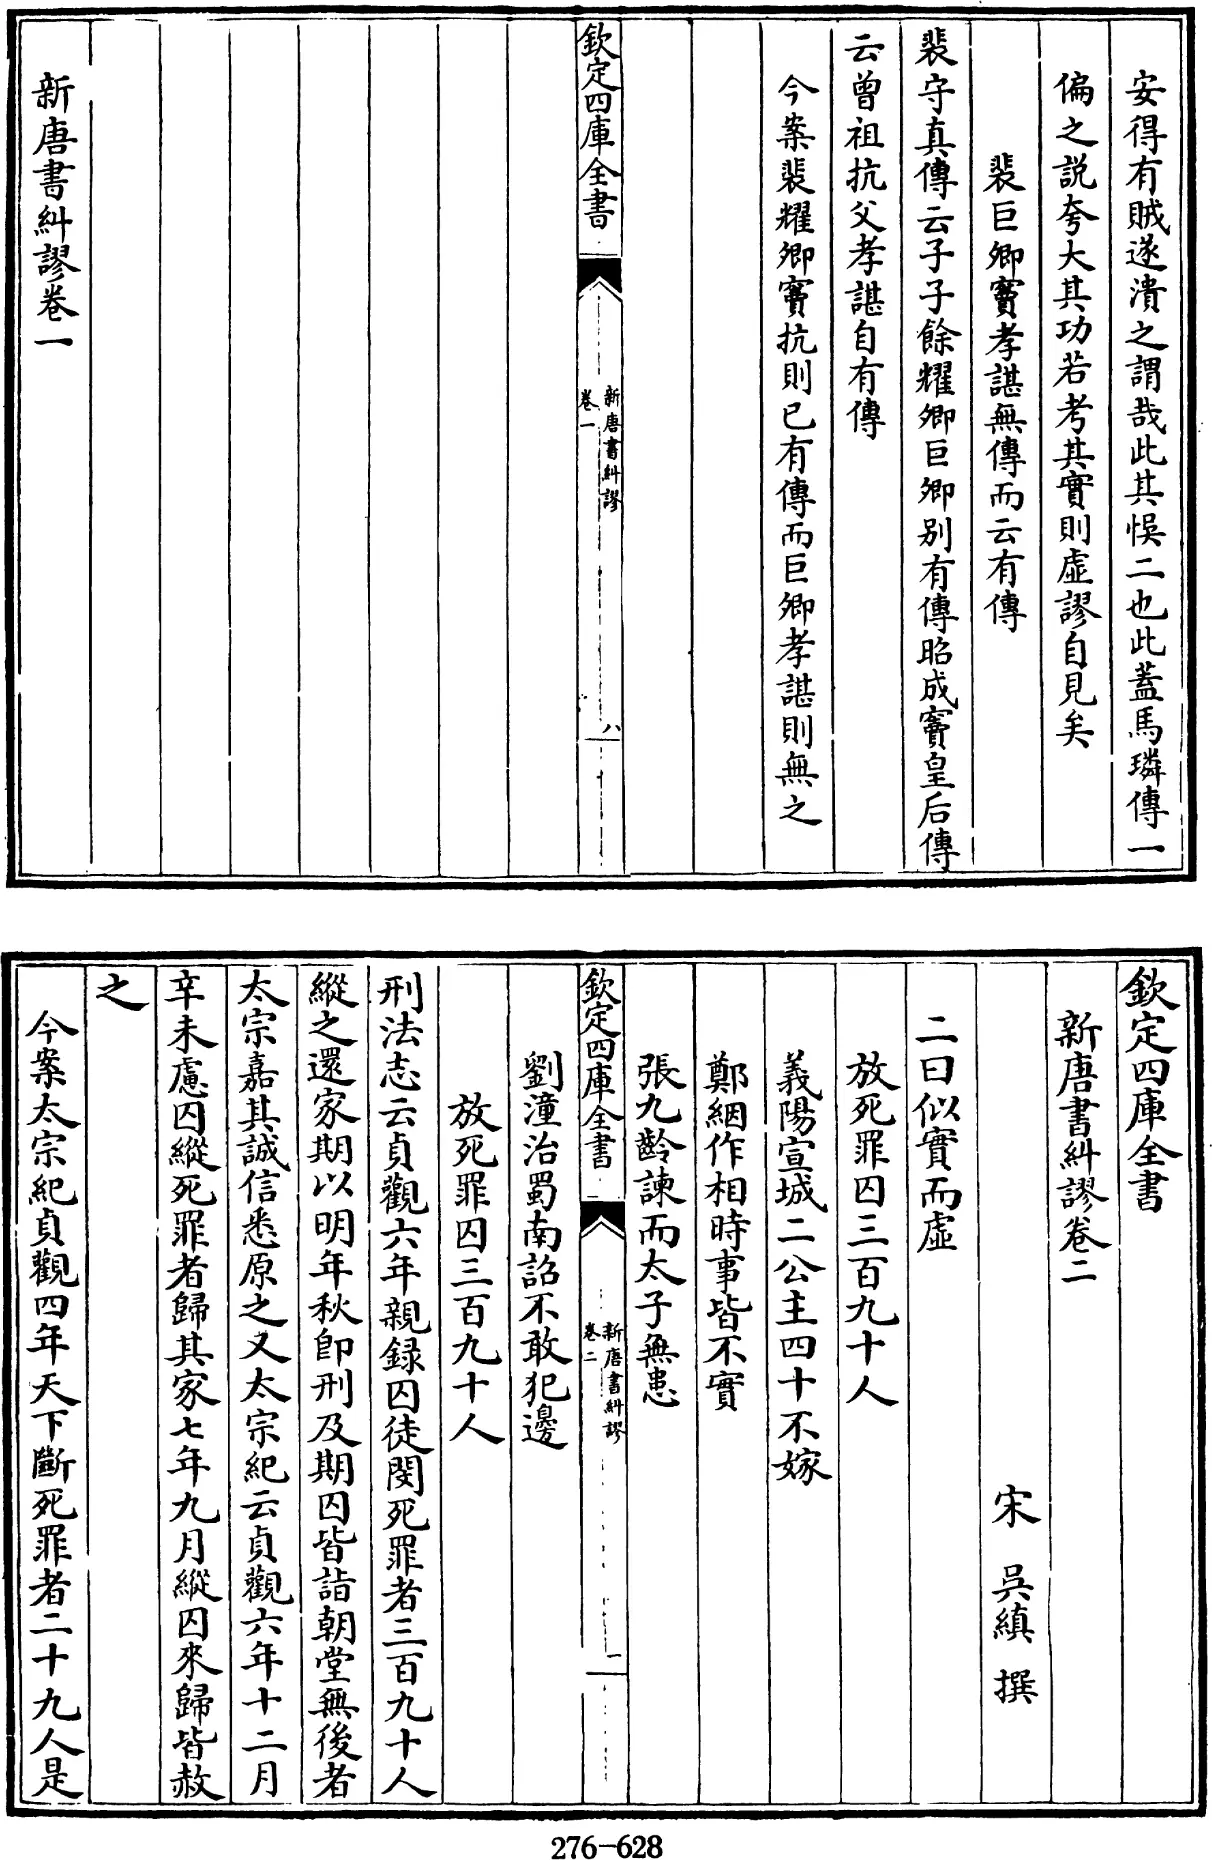 安得有賊遂潰之謂哉此其悞二也此蓋馬璘傳一
偏之説夸大其功若考其實則虚謬自見矣
裴巨卿竇孝諶無傳而云有傳
裴守真傳云子子餘耀卿巨卿别有傳昭成竇皇后傳
云曾祖抗父孝諶自有傳
今案裴耀卿竇抗則已有傳而巨卿孝諶則無之
欽定四庫全書
新唐書糾謬
卷一
八
新唐書糾謬卷一
欽定四庫全書
新唐書糾謬卷二
宋 吳縝 撰
二曰似實而虚
放死罪囚三百九十人
義陽宣城二公主四十不嫁
鄭絪作相時事皆不實
張九齡諫而太子無患
欽定四庫全書
新唐書糾謬
卷二
一
劉潼治蜀南詔不敢犯邊
放死罪囚三百九十人
刑法志云貞觀六年親録囚徒閔死罪者三百九十人
縱之還家期以明年秋即刑及期囚皆詣朝堂無後者
太宗嘉其誠信悉原之又太宗紀云貞觀六年十二月
辛未慮囚縱死罪者歸其家七年九月縱囚來歸皆赦
之
今案太宗紀貞觀四年天下斷死罪者二十九人是
276-628